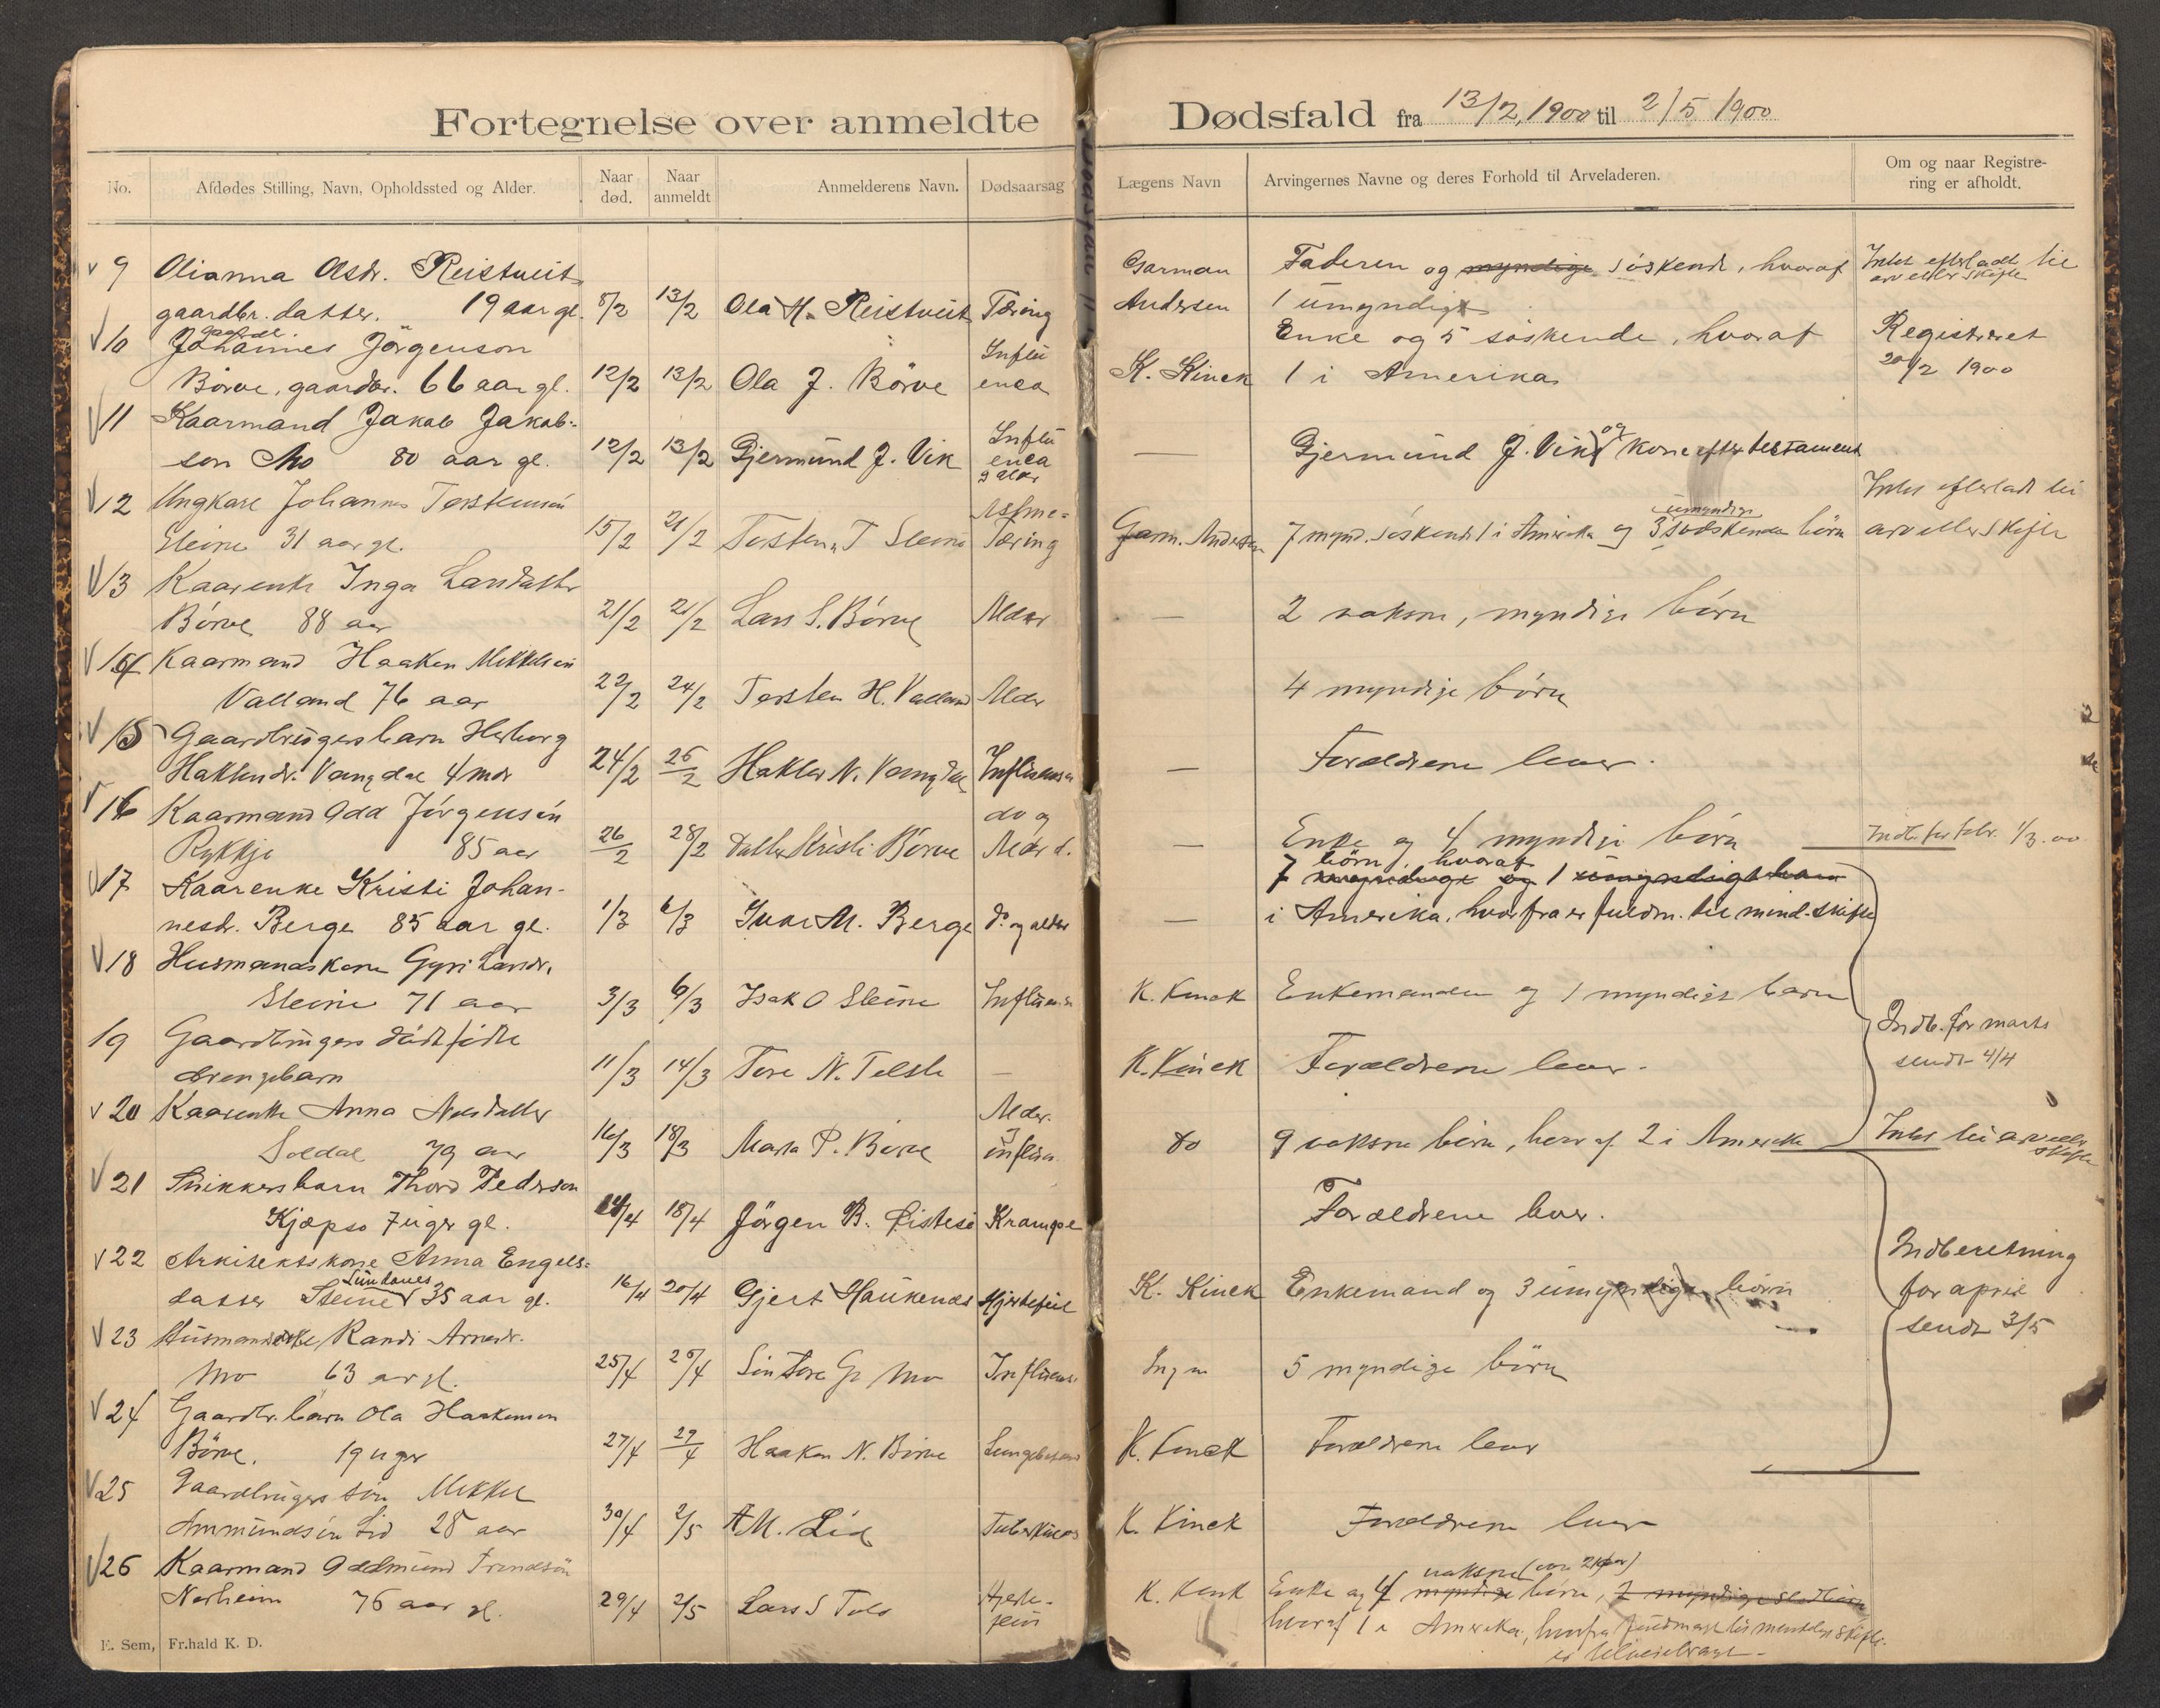 Fortegnelse over anmeldte Dødsfald fra 13/2, 1900 til 2/5 1900
No. Afdødes Stilling, Navn, Opholdssted og Alder. Naar død. Naar anmeldt Anmelderens Navn. Dødsaarsag Lægens Navn Arvingernes Navne og deres Forhold til Arveladeren. Om og naar Registrering er afholdt.
9 Olianna Olsdr. Reistveit Garman Faderen og myndige søskende, hvoraf Intet efterladt til
gaardbr. datter. 19 aar gl. 8/2 13/2 Ola H. Reistveit Tæring Andersen 1 umyndigt arv eller skifte
10 Johannes Jørgenson Influ Enke og 5 søskende, hvoraf Registreret
Börve, gaardbr. 66 aar gl. 12/2 13/2 Ola J. Börve enca K. Kinck 1 i Amerika 20/2 1900
11 Kaarmand Jakob Jakob- Influ
son Mo 80 aar gl. 12/2 13/2 Gjermund J. Vik enca — Gjermund J. Vik og kone efter testament
12 Ungkarl Johannes Torsteinsøn Intet efterladt til
Steine 31 aar gl. 15/2 21/2 Torstein T Steine Tæring Garm. Andersen 7 mynd. søskende 1 i Amerika og 3 umyndige sødskendebörn arv eller skifte
13 Kaarenke Inga Larsdatter
Börve 88 aar 21/2 21/2 Lars S. Börve Alder — 2 voksne, myndige börn
14 Kaarmand Haaken Mikkelsen
Valland 76 aar 22/2 24/2 Torsten H. Valland Alder 4 myndige börn
15 Gaardbrugersbarn Herborg
Hakledr. Vangdal 4 mdr 24/2 26/2 Hakler N. Vangdal Influensa — Forældrene lever.
16 Kaarmand Odd Jörgensön do og
Rykkje 85 aar 26/2 28/2 Datter Kristi Börve Alder d. — Enke og 4 myndige börn Indb. for febr. 1/3.00
17 Kaarenke Kristi Johan- 7 börn, hvoraf 1
nesdr. Berge 85 aar gl. 1/3 6/3 Ivar M. Berge do og alder — i Amerika, hvorfra er fuldm. til mind. skifte
18 Husmandskone Gyri Larsdr.
Steine 71 aar 3/3 6/3 Isak O Steine Influensa K. Kinck Enkemanden og 1 myndigt barn
19 Gaardbrugers dödfödte Indb. for marts
drengebarn 11/3 14/3 Tore N. Tolste — K. Kinck Forældrene lever. sendt 4/4
20 Kaarenke Anna Nilsdatter Alder.
Soldal 79 aar 16/3 18/3 Marta P. Börve influen. do 9 voksne börn, hvoraf 2 i Amerika Intet til arv eller skifte
21 Snikkersbarn Thord Pederson
Kjæpso 7 uger gl. 18/4 Jörgen B. Øistesö Krampe Forældrene lever.
22 Arkitektskone Anna Engels- Indberetning
datter Steine Sundanes 35 aar gl. 16/4 20/4 Gjert Haukenæs Hjertefeil K. Kinck Enkemand og 3 umyndige börn for april
23 Husmandsenke Randi Arnedr. sendt 3/5
Mo 63 aar gl. 25/4 26/4 Sön Tore G. Mo Influensa Ingen 5 myndige börn
24 Gaardbr. barn Ola Haakenson
Börve. 19 uger 27/4 29/4 Haaken N. Börve K. Kinck Forældrene lever
25 Gaardbrugers sön Mikkel
Ammundsön Lid 28 aar 30/4 2/5 A M. Lid Tuberkulos K. Kinck Forældrene lever
26 Kaarmand Oddmund Trondsön voksne (over 21 aar)
Norheim 76 aar gl. 29/4 2/5 Lars S Tolo Hjerte- K. Kinck Enke og 4 myndige börn, 2 myndige stedbörn
feil hvoraf 1 i Amerika, hvorfra fuldmagt til mindelig skifte
er tilveiebragt.
E. Sem, Fr.hald K. D.